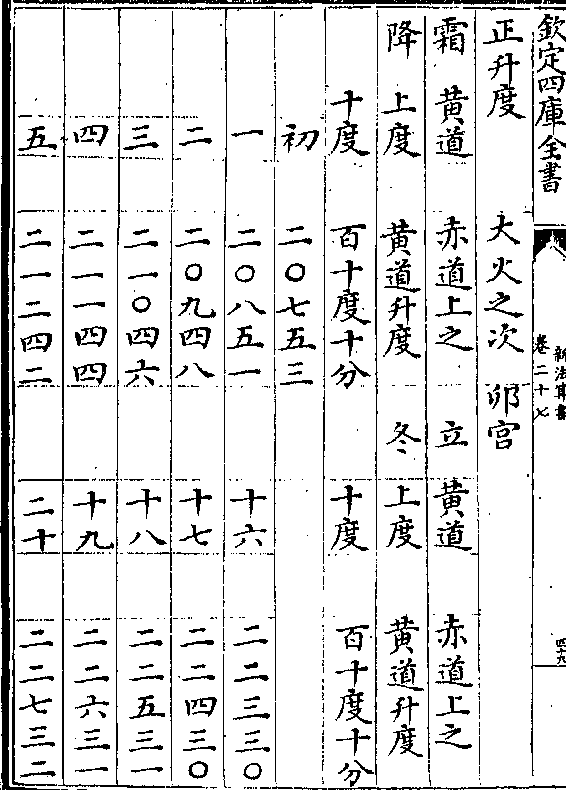 欽定四庫全書
新法算書
卷二十七
四十九
正升度 大火之次 卯宮
霜 黃道 赤道上之 立 黃道 赤道上之
降 上度 黃道升度 冬 上度 黃道升度
十度 百十度十分 十度 百十度十分
初 二〇七五三
一 二〇八五一 十六 二二三三〇
二 二〇九四八 十七 二二四三〇
三 二一〇四六 十八 二二五三一
四 二一一四四 十九 二二六三一
五 二一二四二 二十 二二七三二